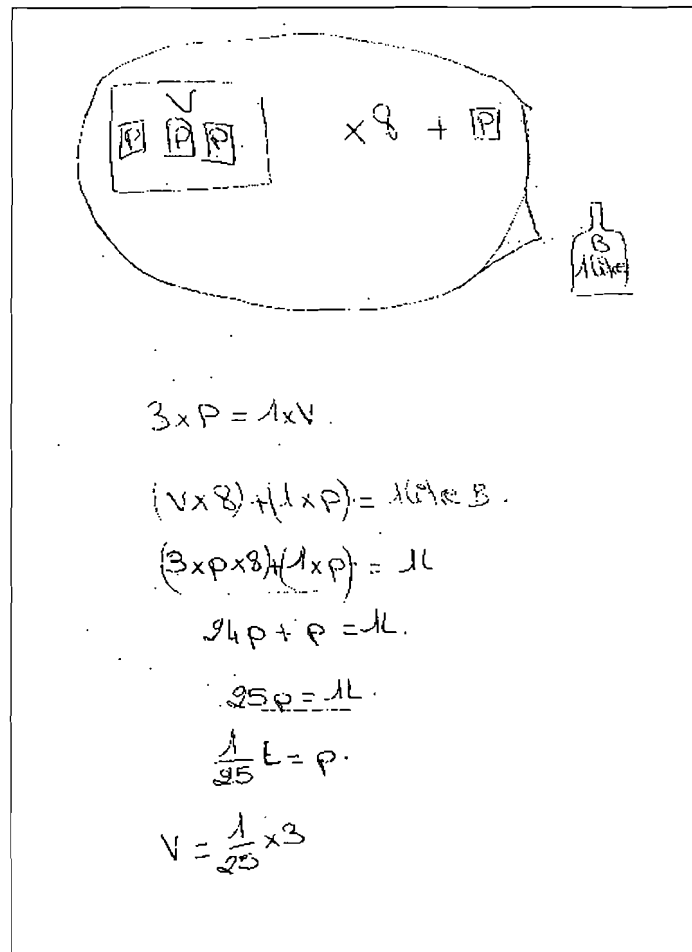 V
P P P x 8 + P
B
1 litre
3 x P = 1 x V.
(V x 8) + (1 x P) = 1 litre B.
(3 x p x 8) + (1 x p) = 1L
24p + p = 1L.
25p = 1L.
1/25 L = p.
V = 1/25 x 3